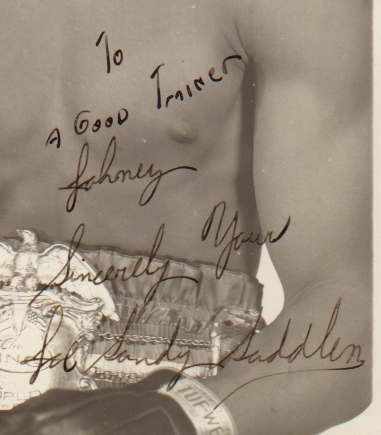 To
A Good Trainer
Johney
Sincerely Your
Pal Sandy Saddler